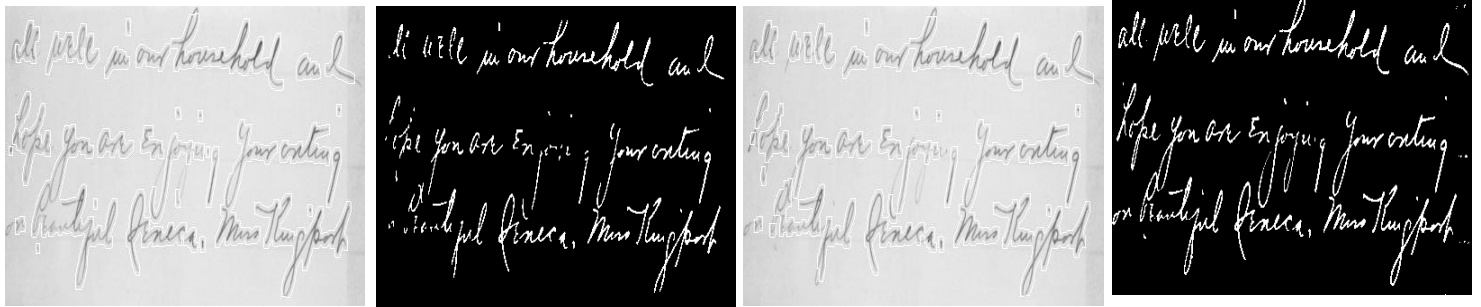 all well in our household and
hope you are Enjoying Your outing
on beautiful Seneca, Miss Kingport
all well in our household and
hope you are Enjoying Your outing
on beautiful Seneca, Miss Kingport
all well in our household and
hope you are Enjoying Your outing
on beautiful Seneca, Miss Kingport
all well in our household and
hope you are Enjoying Your outing
on beautiful Seneca, Miss Kingport